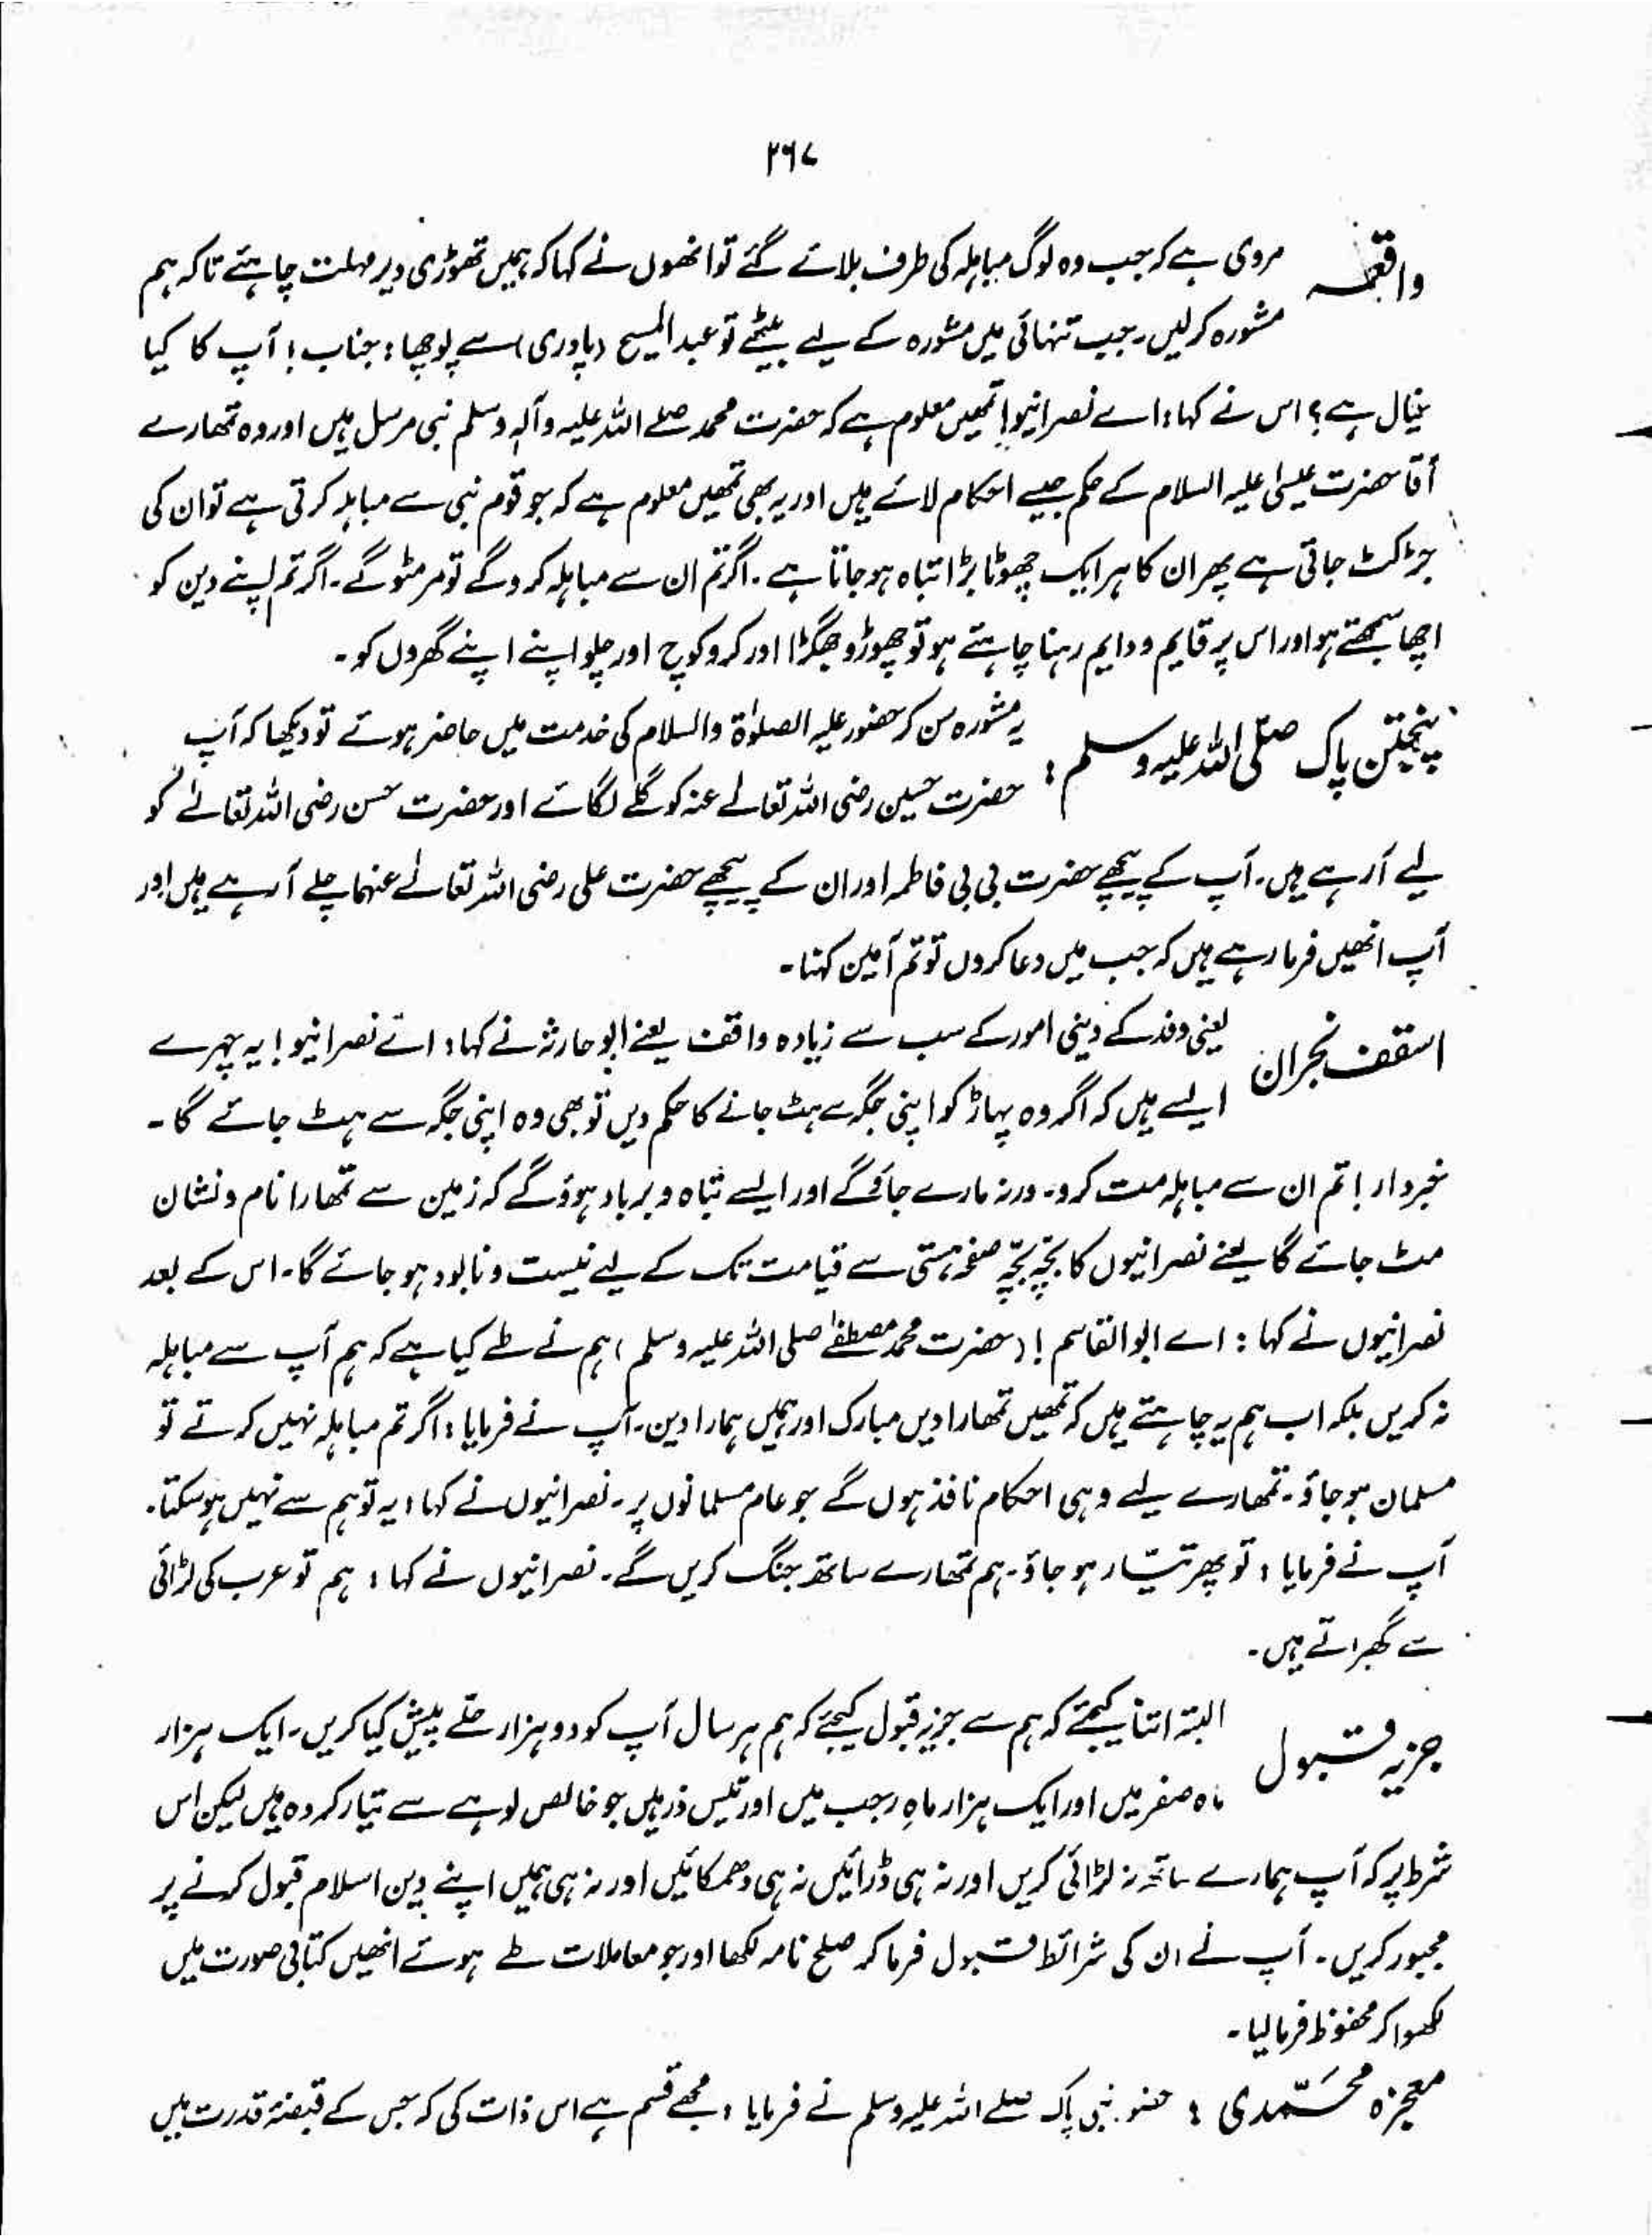 ۲۶۷
واقعہ مروی ہے کہ جب وہ لوگ مباہلہ کی طرف بلائے گئے تو انھوں نے کہا کہ ہمیں تھوڑی دیر مہلت چاہئے تاکہ ہم
مشورہ کرلیں۔ جب تنہائی میں مشورہ کے لیے بیٹھے تو عبدالمسیح (پادری) سے پوچھا: جناب! آپ کا کیا
خیال ہے؟ اس نے کہا: اے نصرانیو! تمھیں معلوم ہے کہ حضرت محمد صلے اللہ علیہ وآلہٖ وسلم نبی مرسل ہیں اور وہ تمھارے
آقا حضرت عیسیٰ علیہ السلام کے حکم جیسے احکام لائے ہیں اور یہ بھی تمھیں معلوم ہے کہ جو قوم نبی سے مباہلہ کرتی ہے تو ان کی
جڑ کٹ جاتی ہے پھر ان کا ہر ایک چھوٹا بڑا تباہ ہو جاتا ہے۔ اگر تم ان سے مباہلہ کرو گے تو مر مٹو گے۔ اگر تم اپنے دین کو
اچھا سمجھتے ہو اور اس پر قایم و دایم رہنا چاہتے ہو تو چھوڑو جھگڑا اور کرو کوچ اور چلو اپنے اپنے گھروں کو۔
پنجتن پاک صلّی اللہ علیہ وسلم: یہ مشورہ سن کر حضور علیہ الصلوٰۃ والسلام کی خدمت میں حاضر ہوئے تو دیکھا کہ آپ
حضرت حسین رضی اللہ تعالے عنہ کو گلے لگائے اور حضرت حسن رضی اللہ تعالےٰ کو
لیے آرہے ہیں۔ آپ کے پیچھے حضرت بی بی فاطمہ اور ان کے پیچھے حضرت علی رضی اللہ تعالےٰ عنہما چلے آرہے ہیں اور
آپ انھیں فرما رہے ہیں کہ جب میں دعا کروں تو تم آمین کہنا۔
اسقف نجران یعنی وفد کے دینی امور کے سب سے زیادہ واقف یعنے ابو حارثہ نے کہا: اے نصرانیو! یہ چہرے
ایسے ہیں کہ اگر وہ پہاڑ کو اپنی جگہ سے ہٹ جانے کا حکم دیں تو بھی وہ اپنی جگہ سے ہٹ جائے گا۔
خبردار! تم ان سے مباہلہ مت کرو۔ ورنہ مارے جاؤ گے اور ایسے تباہ و برباد ہوؤ گے کہ زمین سے تمھارا نام و نشان
مٹ جائے گا یعنے نصرانیوں کا بچّہ بچّہ صفحہ ہستی سے قیامت تک کے لیے نیست و نابود ہو جائے گا۔ اس کے بعد
نصرانیوں نے کہا: اے ابوالقاسم! (حضرت محمد مصطفےٰ صلی اللہ علیہ وسلم) ہم نے طے کیا ہے کہ ہم آپ سے مباہلہ
نہ کریں بلکہ اب ہم یہ چاہتے ہیں کہ تمھیں تمھارا دیں مبارک اور ہمیں ہمارا دین۔ آپ نے فرمایا: اگر تم مباہلہ نہیں کرتے تو
مسلمان ہو جاؤ۔ تمھارے لیے وہی احکام نافذ ہوں گے جو عام مسلمانوں پر۔ نصرانیوں نے کہا: یہ تو ہم سے نہیں ہو سکتا۔
آپ نے فرمایا: تو پھر تیّار ہو جاؤ۔ ہم تمھارے ساتھ جنگ کریں گے۔ نصرانیوں نے کہا: ہم تو عرب کی لڑائی
سے گھبراتے ہیں۔
جزیہ قبول البتہ اتنا کیجئے کہ ہم سے جزیہ قبول کیجئے کہ ہم ہر سال آپ کو دو ہزار حلّے پیش کیا کریں۔ ایک ہزار
ماہ صفر میں اور ایک ہزار ماہِ رجب میں اور تیس ذرہیں جو خالص لوہے سے تیار کردہ ہیں لیکن اس
شرط پر کہ آپ ہمارے ساتھ نہ لڑائی کریں اور نہ ہی ڈرائیں نہ ہی دھمکائیں اور نہ ہی ہمیں اپنے دین اسلام قبول کرنے پر
مجبور کریں۔ آپ نے ان کی شرائط قبول فرما کر صلح نامہ لکھا اور جو معاملات طے ہوئے انھیں کتابی صورت میں
لکھوا کر محفوظ فرما لیا۔
معجزہ محمّدی: حضور نبی پاک صلے اللہ علیہ وسلم نے فرمایا: مجھے قسم ہے اس ذات کی کہ جس کے قبضۂ قدرت میں